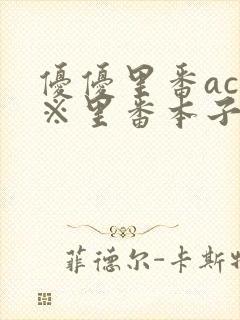 優優里番ac
※里番本子
菲德尔-卡斯特